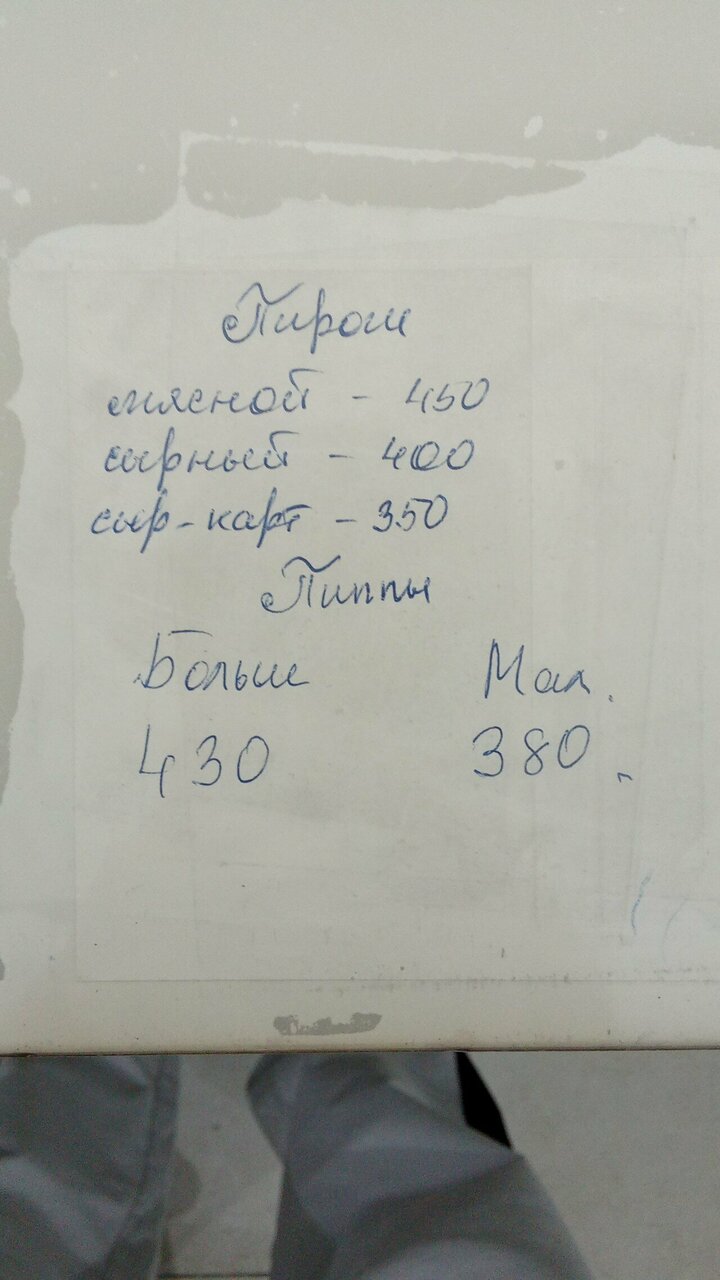 Пироги
мясной - 450
сырный - 400
сыр-карт - 350
Пиццы
Больш Мал.
430 380